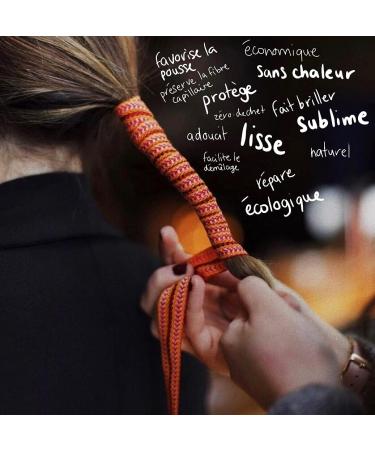 favorise la
pousse
économique
préserve la fibre
capillaire
sans chaleur
protège
zéro déchet
fait briller
sublime
adoucit
lisse
naturel
facilite le
démêlage
répare
écologique